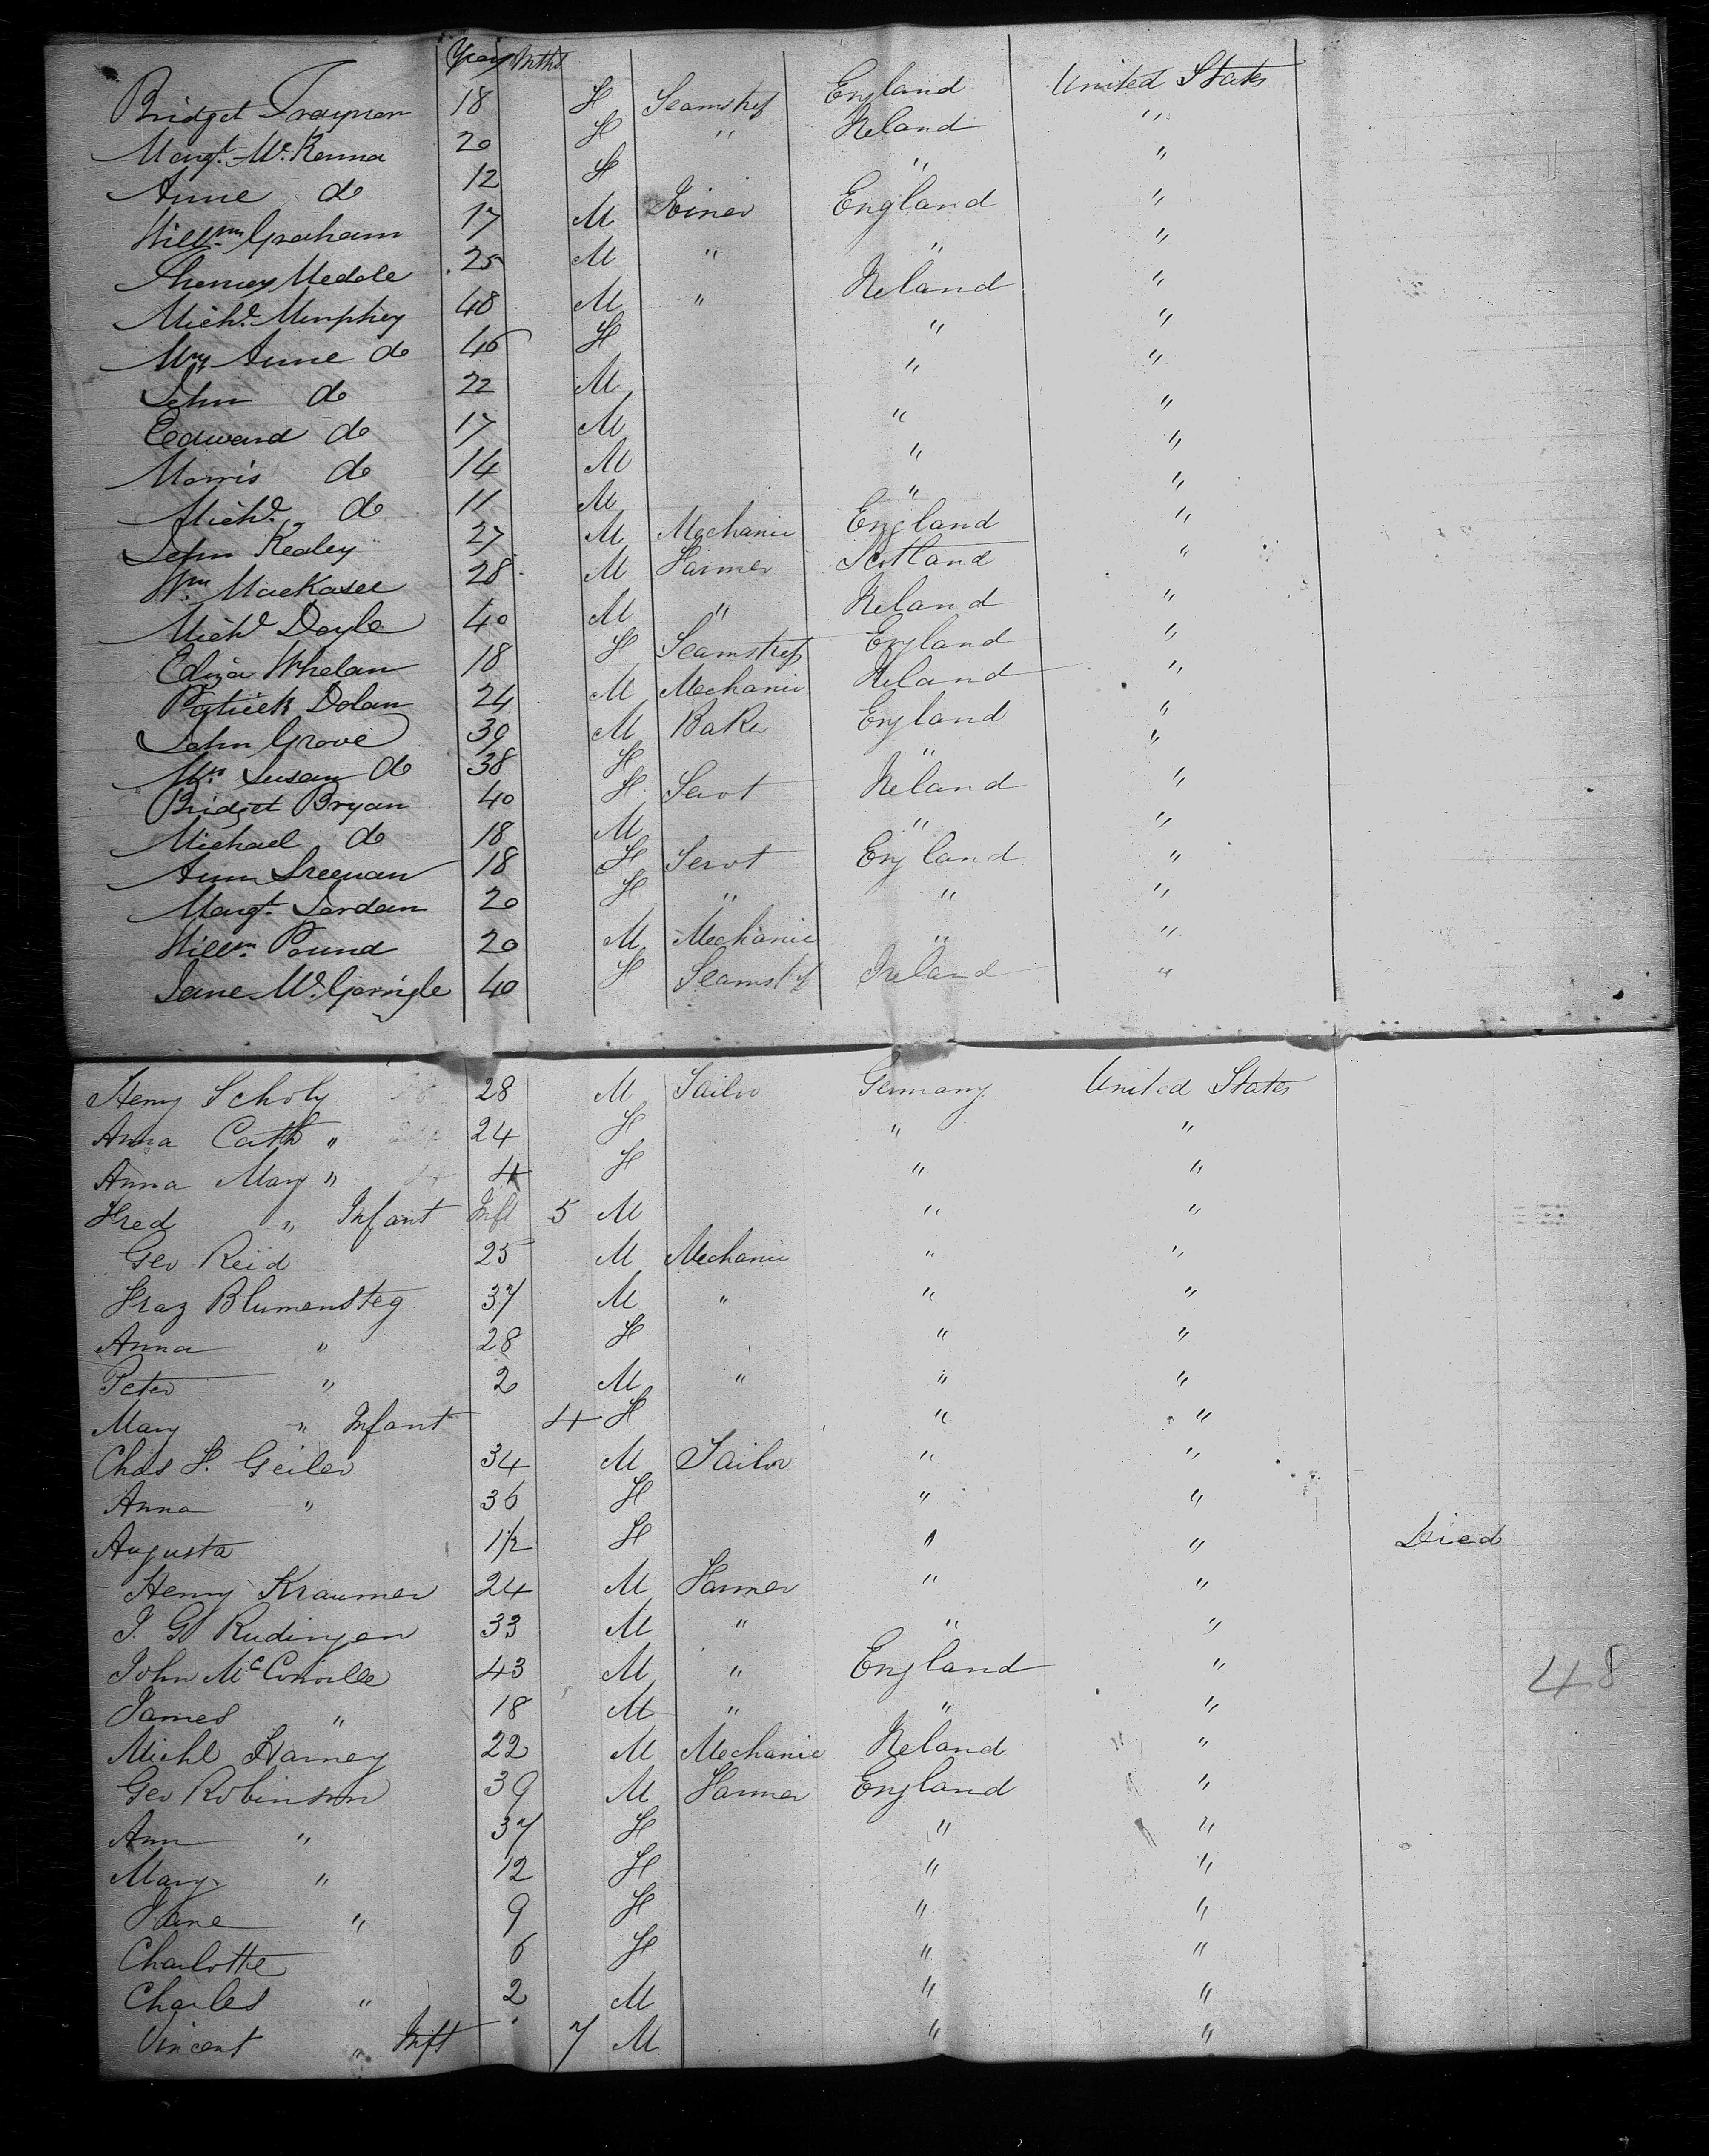 Years Mths
Bridget Traynor 18 F Seamstress England United States
Margt. McKenna 20 F " Ireland "
Anne do 12 F " "
Willm. Graham 17 M Miner England "
Thomas 25 M " " "
Michl. Murphy 48 M " Ireland "
Mrs Anne do 46 F " "
John do 22 M " "
Edward do 17 M " "
Morris do 14 M " "
Michl. do 11 M " "
John Kealey 27 M Mechanic England "
Wm. MacKasee 28 M Farmer Scotland "
Michl Doyle 40 M " Ireland "
Eliza Whelan 18 F Seamstress England "
Patrick Dolan 24 M Mechanic Ireland "
John Grove 39 M Baker England "
Mrs. Susan do 38 F " "
Bridget Bryan 40 F Servt Ireland "
Michael do 18 M " "
Ann 18 F Servt England "
Margt. Jordan 20 F " " "
Willm. Pound 20 M Mechanic " "
Jane McGonigle 40 F Seamstress Ireland "
Henry Scholy 28 M Tailor Germany United States
Anna Cath " 24 F " "
Anna Mary " 4 F " "
Fred " Infant Inft 5 M " "
Geo Reid 25 M Mechanic " "
Fraz Blumensteg 37 M " " "
Anna " 28 F " "
Peter " 2 M " " "
Mary " Infant 4 F " "
Chas F. Geiler 34 M Tailor " "
Anna " 36 F " "
Augusta 1 1/2 F " " Died
Henry Kraumer 24 M Farmer " "
J. G. Rudinger 33 M " " "
John McConville 43 M " England "
48
James " 18 M " " "
Michl Harney 22 M Mechanic Ireland "
Geo Robinson 39 M Farmer England "
Ann " 37 F " "
Mary " 12 F " "
Jane " 9 F " "
Charlotte 6 F " "
Charles " 2 M " "
Vincent " Inft 7 M " "